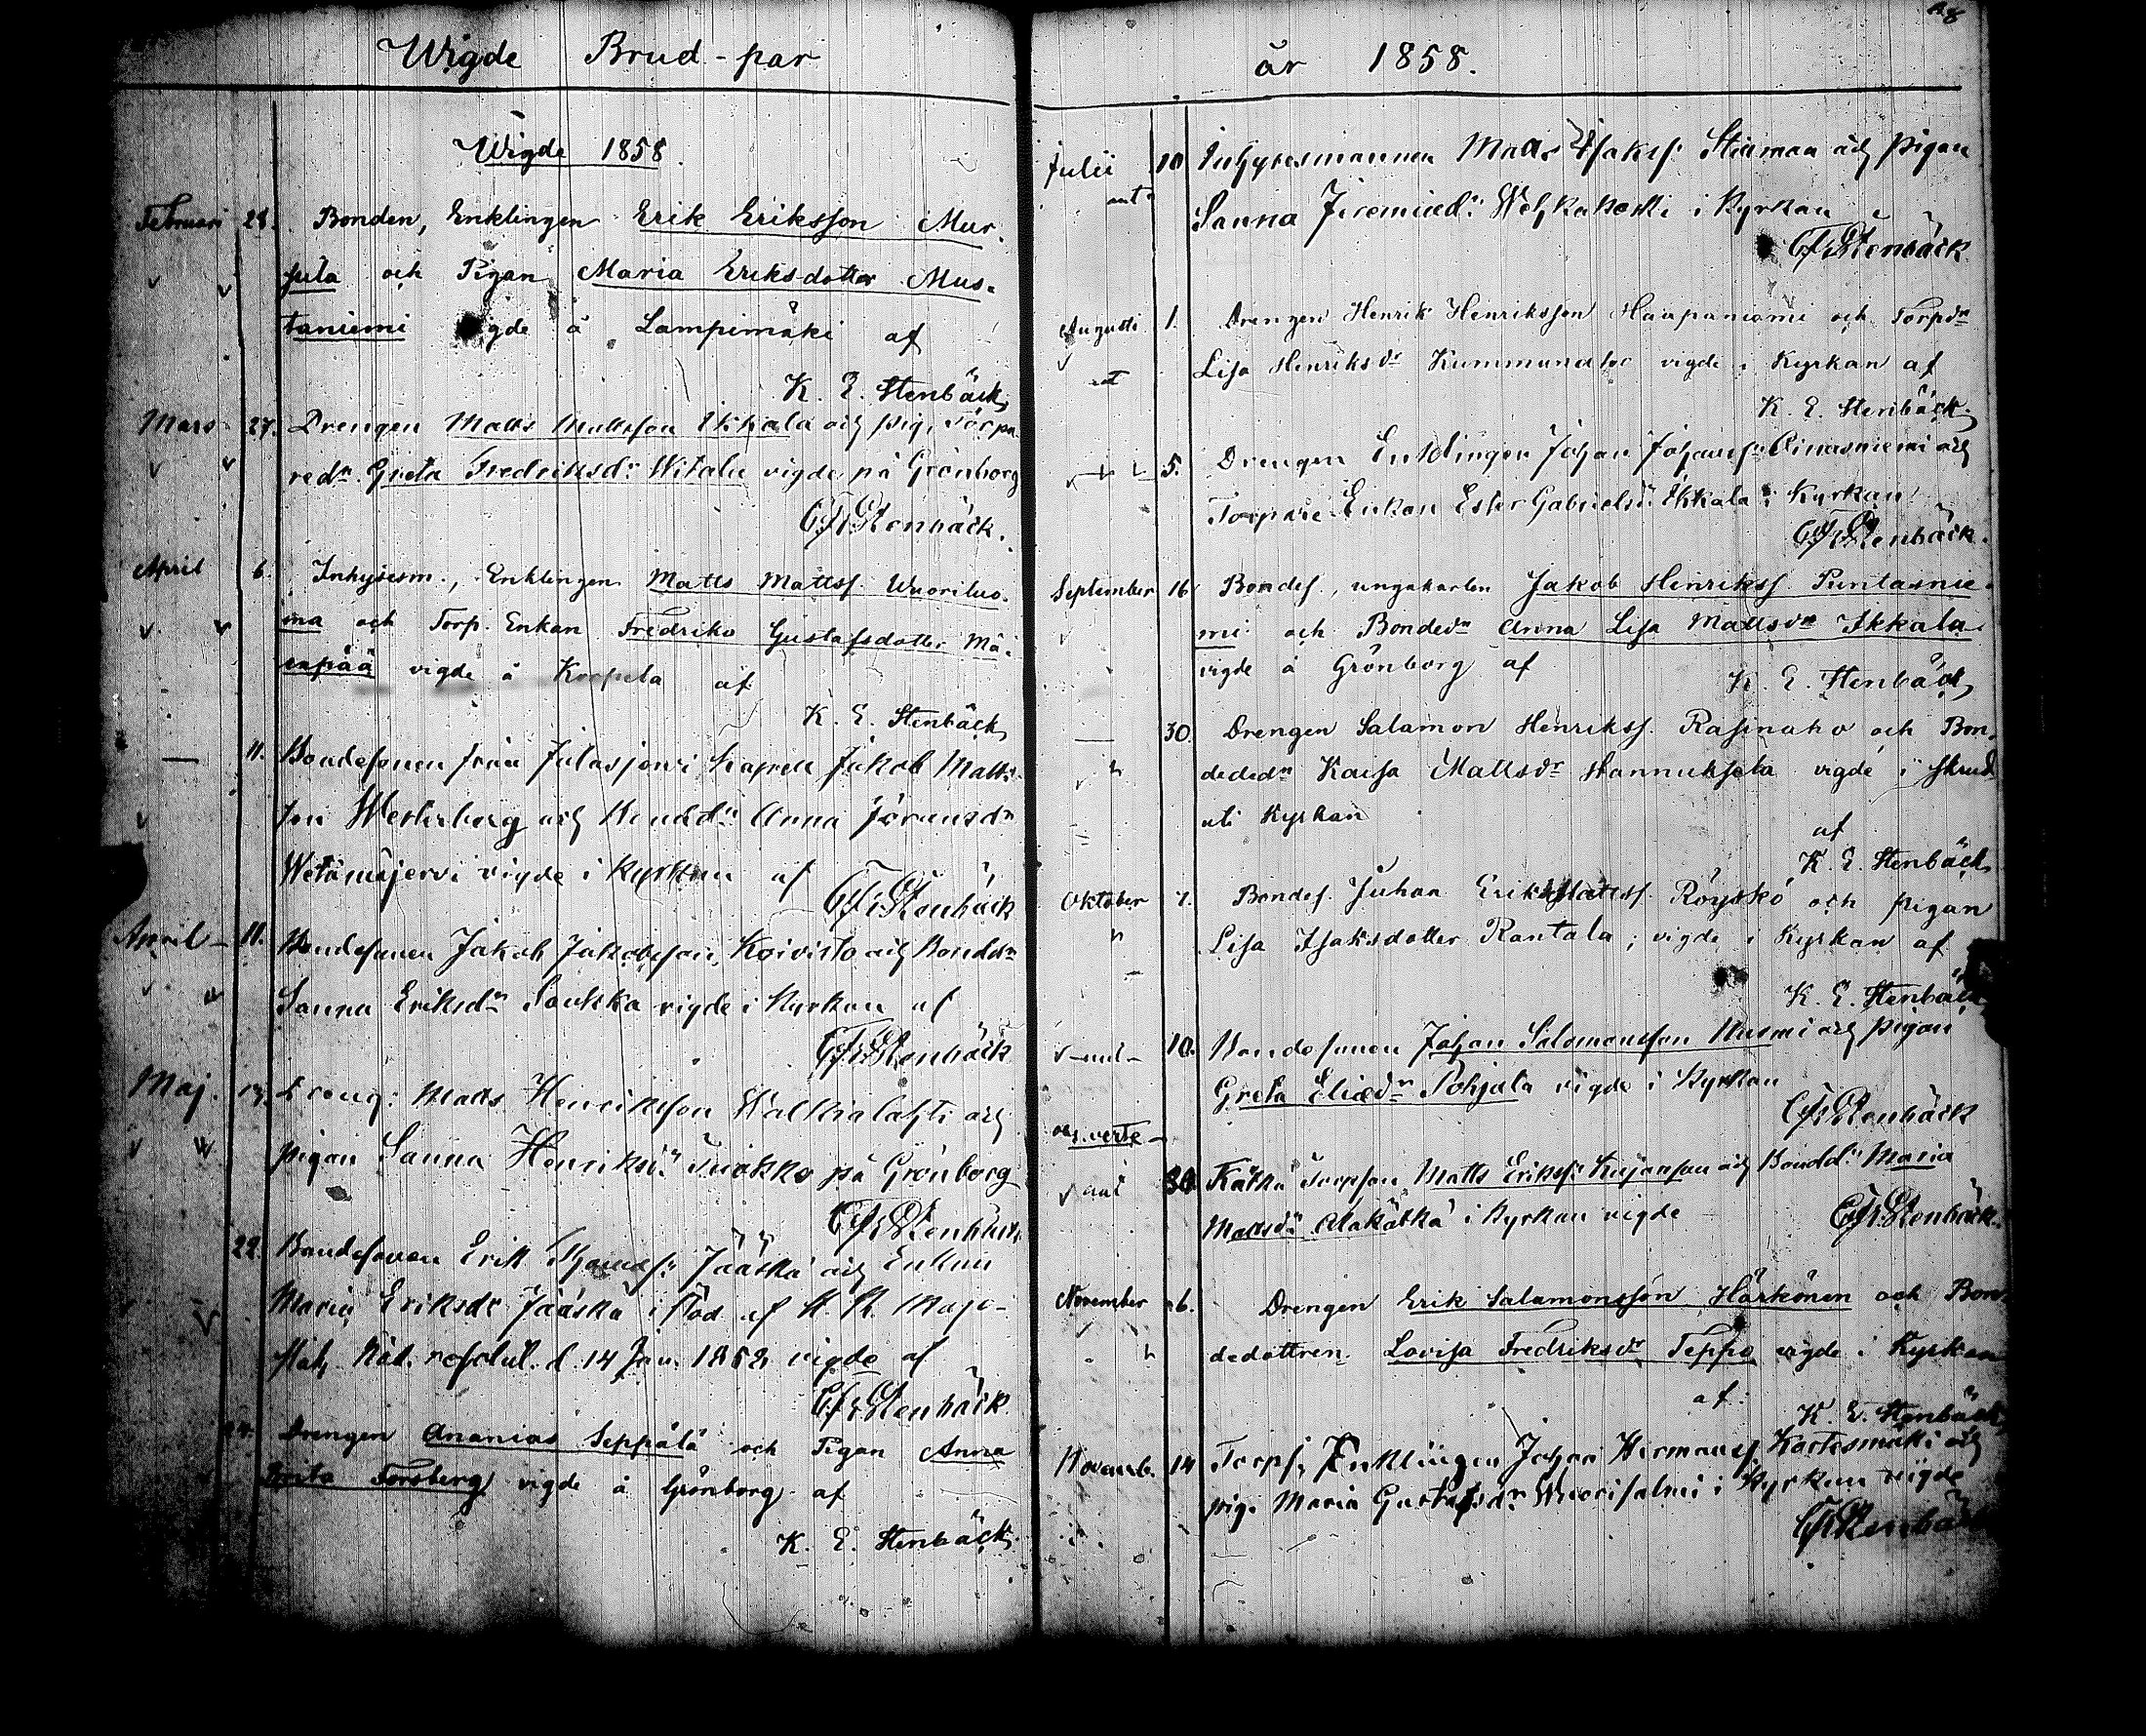 Wigde Brud-par
Wigde 1858.
Februari 28. Bonden, Enklingen Erik Eriksson Mur-
sula och Pigan Maria Eriksdotter Mus-
taniemi vigde å Lampimäki af
K. E. Stenbäck
Mars 27. Drengen Matts Mattsson Ikkala och pig. Torpa
redr Greta Fredriksdr Witale vigde på Grönborg
C Fr Stenbäck.
April 6. Inhysesm., Enklingen Matts Mattsf. Wuoriluo-
ma och Torp. Enkan Fredrika Gustafsdotter Mä-
enpää vigde å Korpela af
K. E. Stenbäck
— 11. Bondesonen från Jalasjervi kapell Jakob Matts
son Westerberg och Bondedr Anna Jöransdr
Wetämäjervi vigde i Kyrkan af
C Fr Stenbäck
April — 11. Bondesonen Jakob Jakobsson Koivisto och Bonddr
Sanna Eriksdr Soukka vigde i Kyrkan af
C Fr Stenbäck
Maj. 13. Dreng: Matts Henriksson Walkialahti och
pigan Sanna Henriksdr på Grönborg
C Fr Stenbäck
22. Bondesonen Erik Thomass: Jääskä och Enkan
Maria Eriksdr Jääskä i stöd af K. K. Maje-
stäts Nåd. resolut. d. 14 Jan. 1858 vigde af
C Fr Stenbäck
24. Drengen Ananias Seppälä och Pigan Anna
Brita Forsberg vigde å Grönborg af
K. E. Stenbäck
år 1858.
Julii 10 Inhysesmannen Matts Isaksf: och Pigan
Sanna Jeremiædr i Kyrkan
C Fr Stenbäck
Augusti 1. Drengen Henrik Henriksson Haapaniemi och Torpdr
Lisa Henriksdr vigde i Kyrkan af
K. E. Stenbäck
5. Drengen Enklingen Johan Johansf: och
Torpare Enkan Ester Gabrielsdr Ikkala i Kyrkan
C Fr Stenbäck.
September 16 Bondes., ungakarlen Jakob Henrikss. Puntasnie-
mi och Bondedr Anna Lisa Mattsdr Ikkala
vigde å Grönborg af
K. E. Stenbäck
— 30. Drengen Salamon Henrikss. Rasinaho och Bon-
dededr Kaisa Mattsdr Hannuksela vigde i skrud
uti Kyrkan
af
K. E. Stenbäck
Oktober 7. Bondes. Juhan Röyskö och pigan
Lisa Isaksdotter Rantala; vigde i Kyrkan af
K. E. Stenbäck
10. Bondesonen Johan Salomonsson Niemi och pigan
Greta Eliædr Pohjala vigde i Kyrkan
C Fr Stenbäck
30 Kätkä Torpson Matts Eriksf: och Bonddr Maria
Mattsdr Alakätkä i Kyrkan vigde
C Fr Stenbäck.
November 6. Drengen Erik Salamonsson Härkönen och Bon-
dedottren Lovisa Fredriksdr Teppo vigde i Kyrkan
af:
K. E. Stenbäck
Novemb. 14 Torps, Enklingen Johan Hermansf. Kortesmäki och
pig. Maria Gustafsdr Wuorisalmi i Kyrkan vigde
C Fr Stenbäck